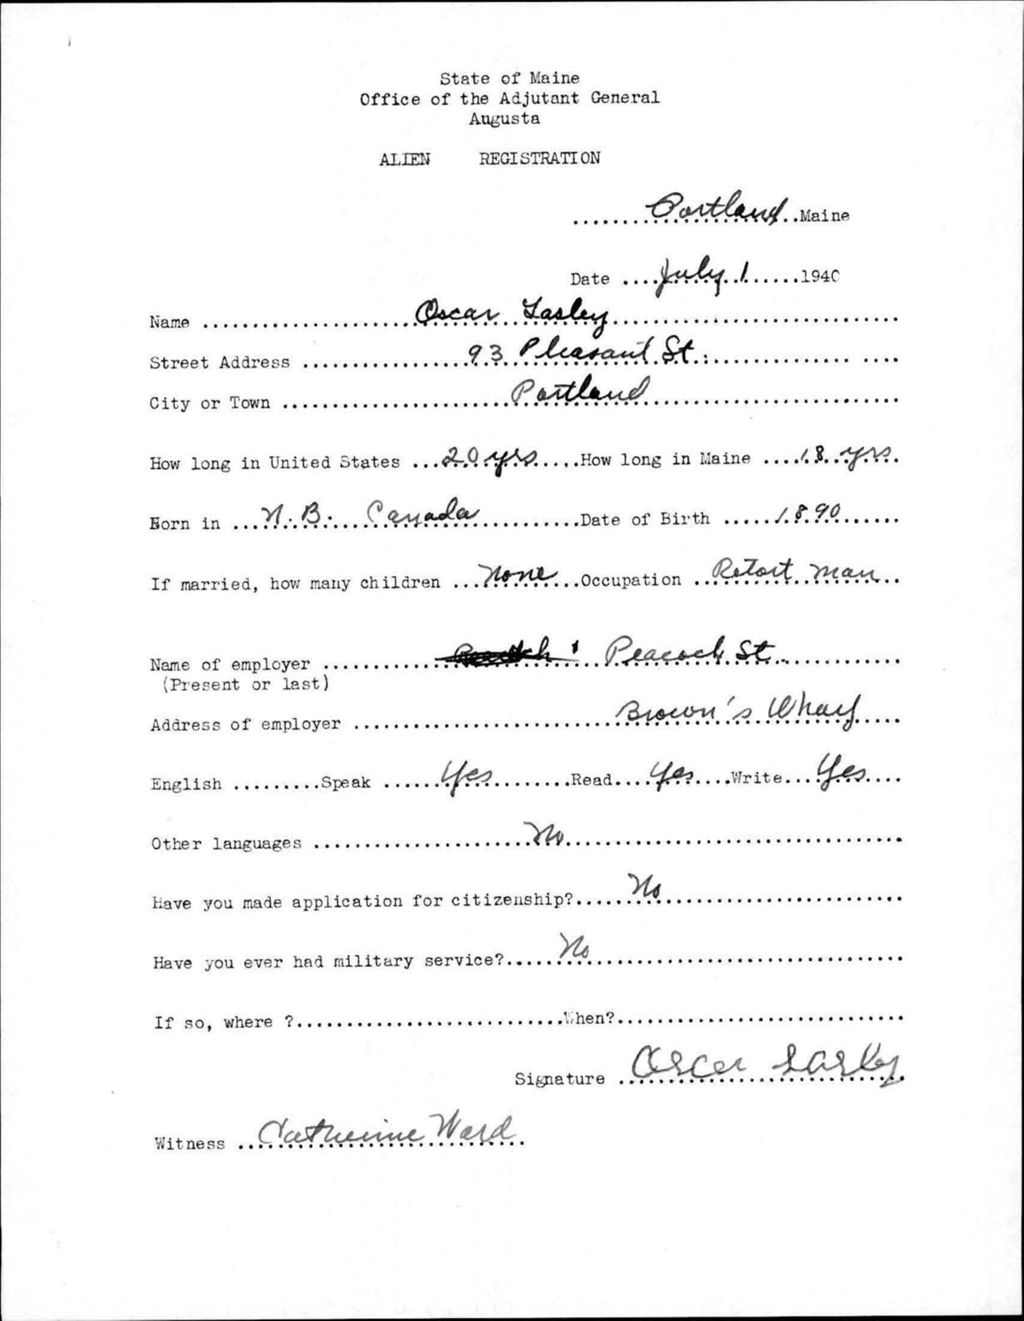 State of Maine
Office of the Adjutant General
Augusta
ALIEN REGISTRATION
Portland Maine
Date July 1 1940
Name Oscar Lasley
Street Address 93 Pleasant St.
City or Town Portland
How long in United States 20 yrs How long in Maine 18 yrs.
Born in N.B. Canada Date of Birth 1890
If married, how many children None Occupation Retort man
Name of employer Peacock St.
(Present or last)
Address of employer Brown's Wharf
English Speak Yes Read Yes Write Yes
Other languages No
Have you made application for citizenship? No
Have you ever had military service? No
If so, where ? When?
Signature Oscer Lasley
Witness Catherine Ward